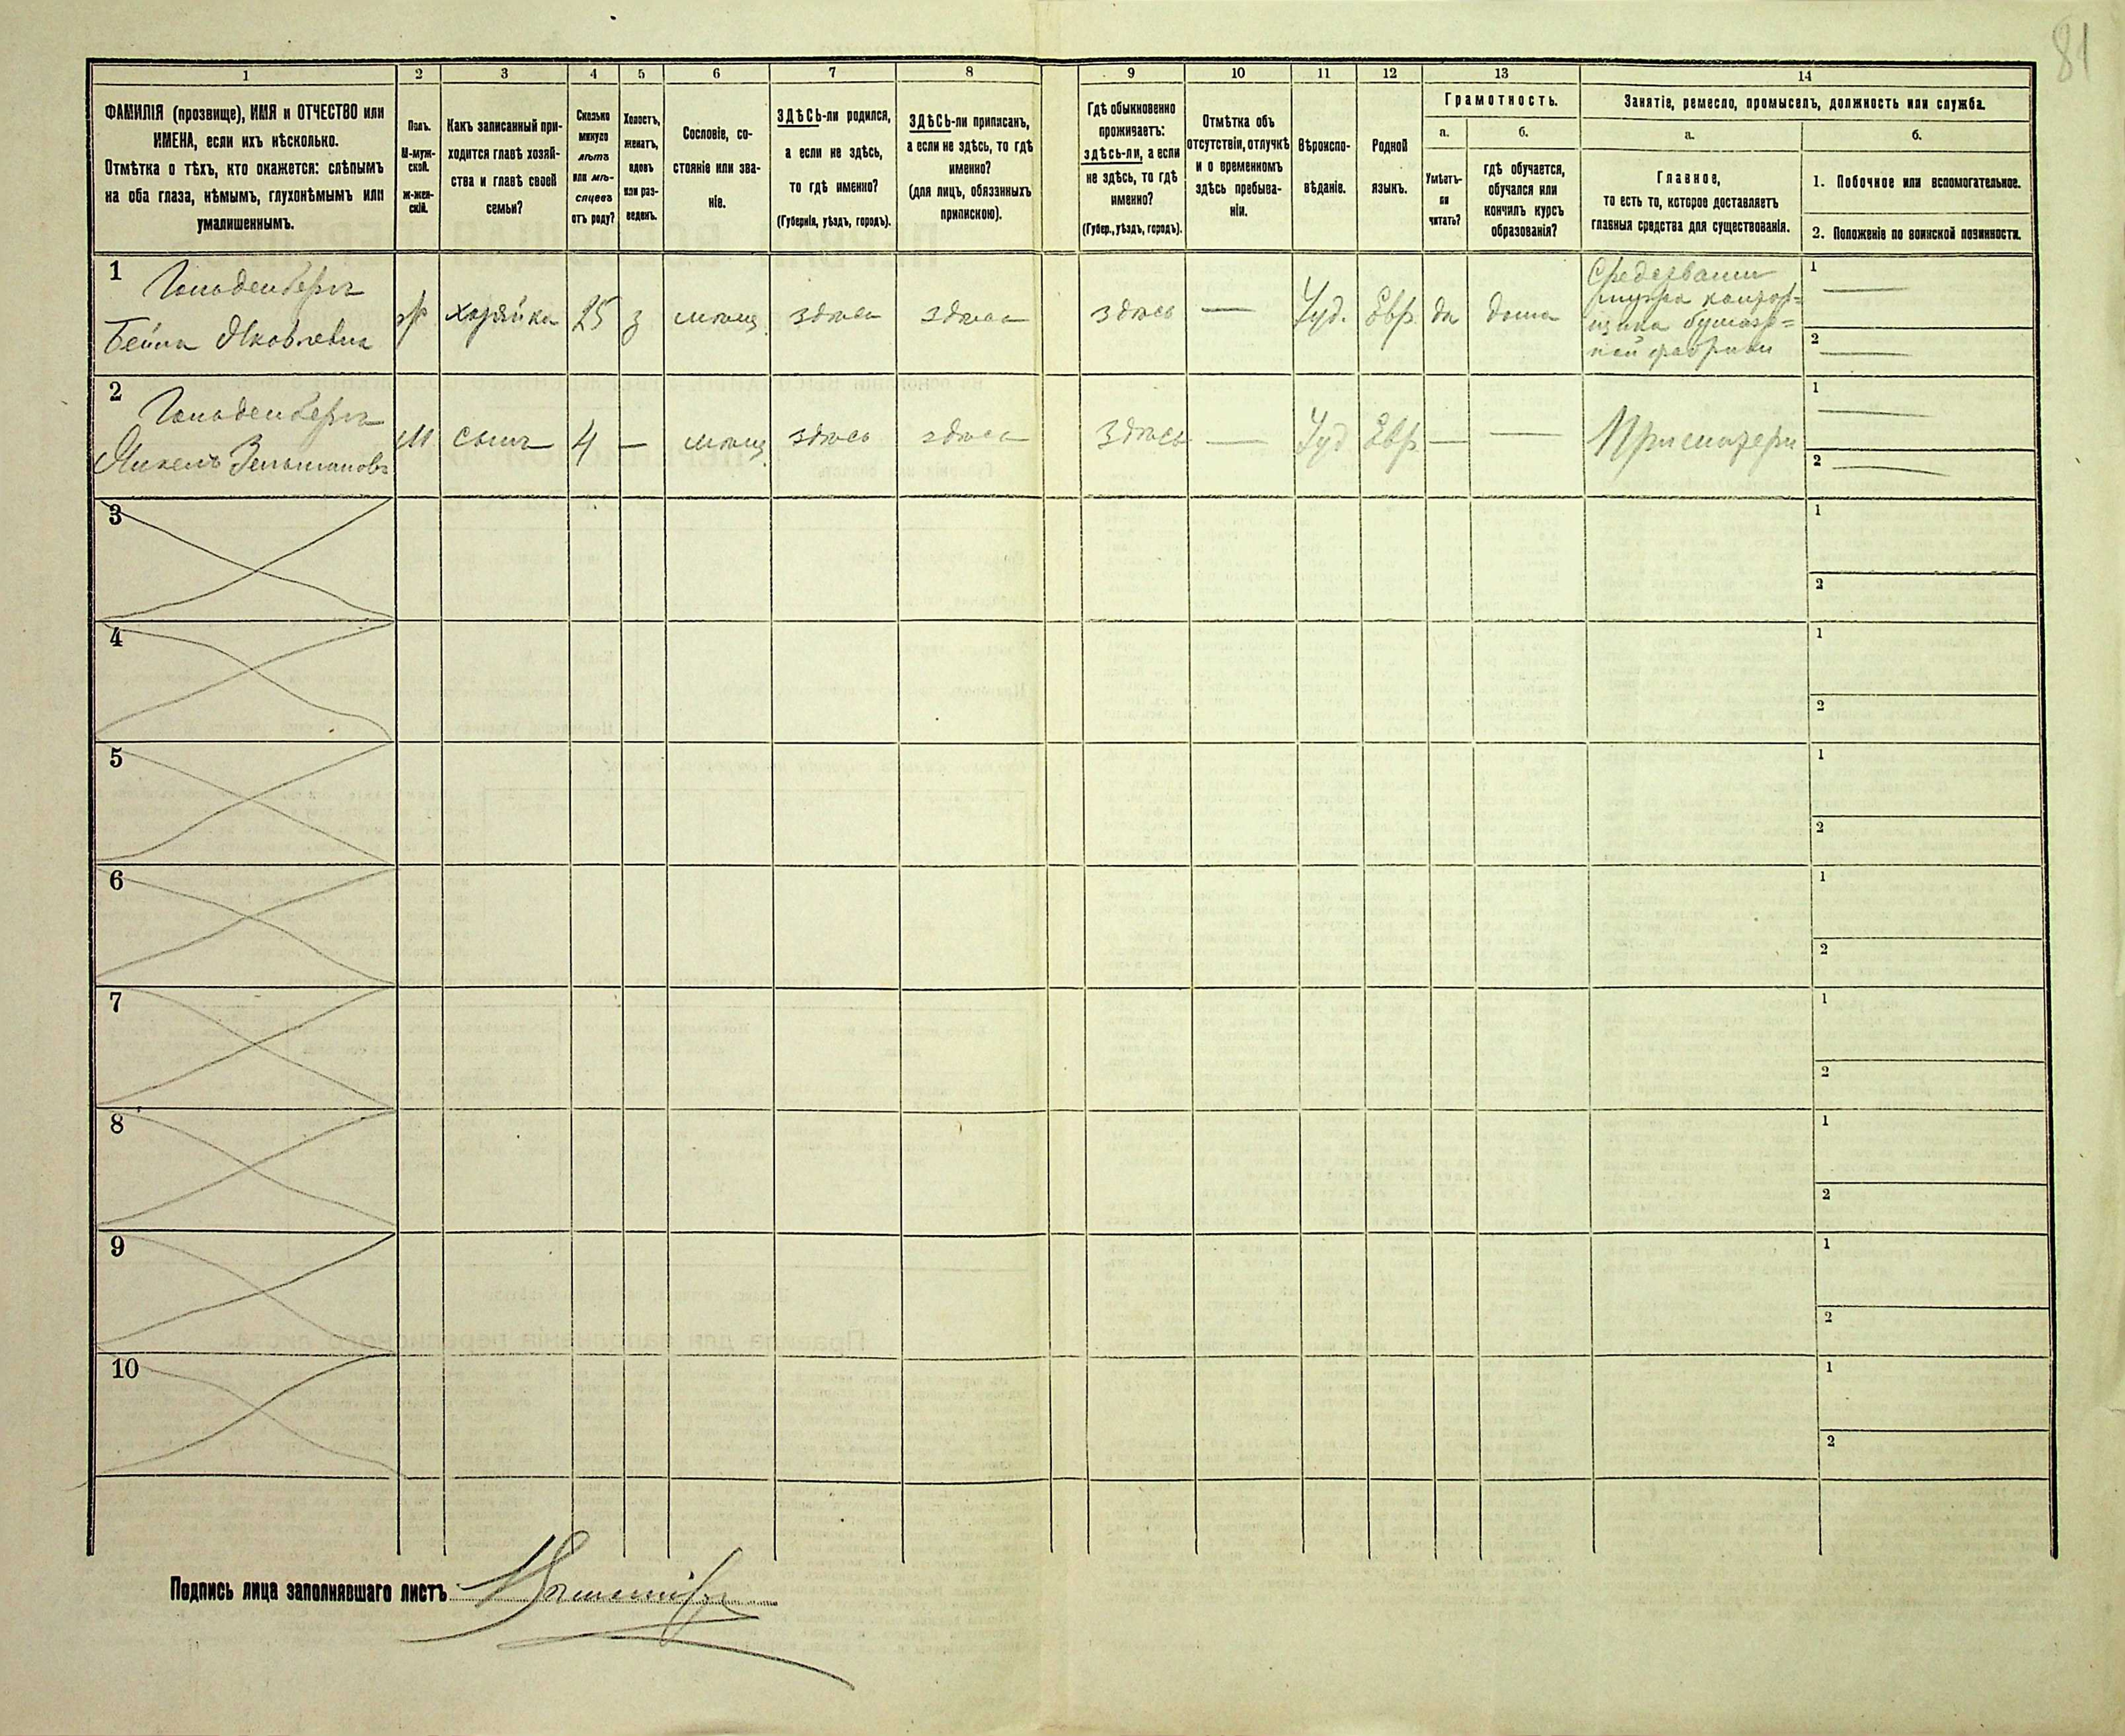 81
1
2
3
4
5
6
7
8
9
10
11
12
13
14
ФАМИЛІЯ (прозвище), ИМЯ и ОТЧЕСТВО или
ИМЕНА, если ихъ нѣсколько.
Отмѣтка о тѣхъ, кто окажется: слѣпымъ
на оба глаза, нѣмымъ, глухонѣмымъ или
умалишеннымъ.
Полъ.
М-муж-
ской.
ж-жен-
скій.
Какъ записанный при-
ходится главѣ хозяй-
ства и главѣ своей
семьи?
Сколько
минуло
лѣтъ
или мѣ-
сяцевъ
отъ роду?
Холостъ,
женатъ,
вдовъ
или раз-
веденъ.
Сословіе, со-
стояніе или зва-
ніе.
ЗДѢСЬ-ли родился,
а если не здѣсь,
то гдѣ именно?
(Губернія, уѣздъ, городъ).
ЗДѢСЬ-ли приписанъ,
а если не здѣсь, то гдѣ
именно?
(для лицъ, обязанныхъ
припискою).
Гдѣ обыкновенно
проживаетъ:
здѣсь-ли, а если
не здѣсь, то гдѣ
именно?
(Губер., уѣздъ, городъ).
Отмѣтка объ
отсутствіи, отлучкѣ
и о временномъ
здѣсь пребыва-
ніи.
Вѣроиспо-
вѣданіе.
Родной
языкъ.
Грамотность.
а.
Умѣетъ-
ли
читать?
б.
гдѣ обучается,
обучался или
кончилъ курсъ
образованія?
Занятіе, ремесло, промыселъ, должность или служба.
а.
Главное,
то есть то, которое доставляетъ
главныя средства для существованія.
б.
1. Побочное или вспомогательное.
2. Положеніе по воинской повинности.
1
Гольденбергъ
Бейла Яковлевна
ж
хозяйка
25
з
мѣщ.
здѣсь
здѣсь
здѣсь
—
Іуд.
Евр.
да
дома
Средствами
мужа контор=
щика бумаж=
ной фабрики
1 —
2 —
2
Гольденбергъ
Янкель Зельмановъ
М
сынъ
4
—
мѣщ.
здѣсь
здѣсь
здѣсь
—
Іуд
Евр.
—
—
При матери
1 —
2 —
3
1
2
4
1
2
5
1
2
6
1
2
7
1
2
8
1
2
9
1
2
10
1
2
Подпись лица заполнявшаго листъ